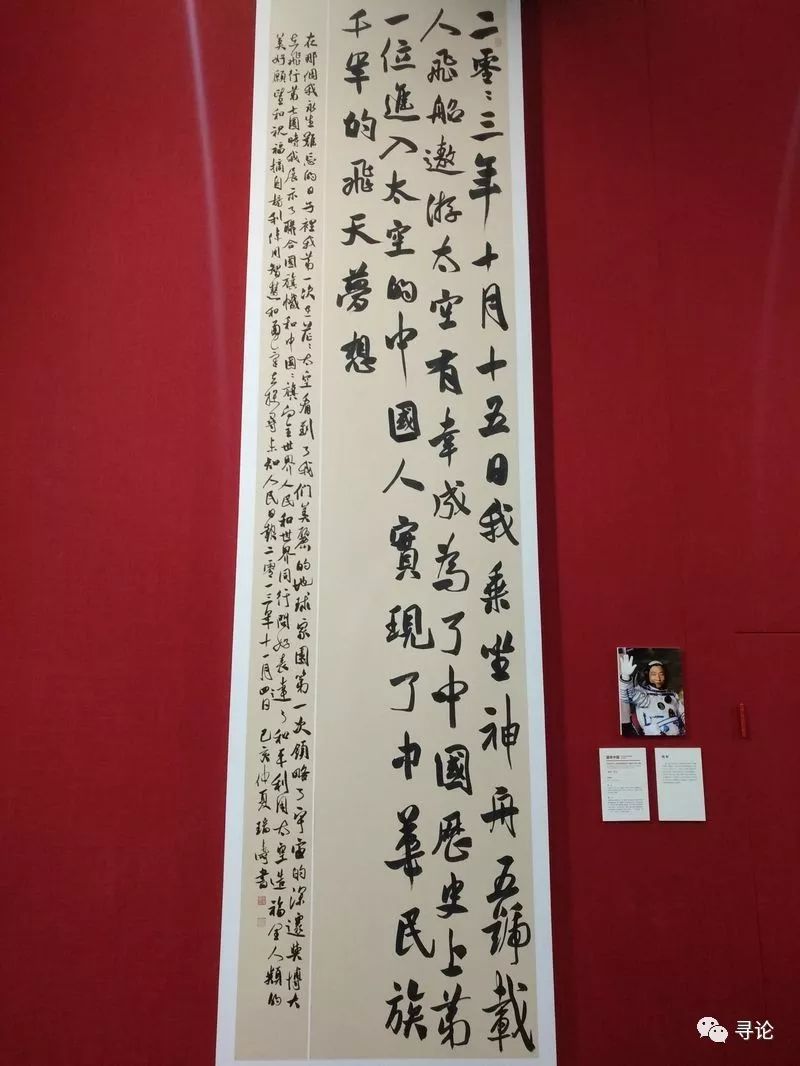 二零〻三年十月十五日我乘坐神舟五號載
人飛船遨游太空有幸成為了中國歷史上第
一位進入太空的中國人實現了中華民族
千年的飛天夢想
在那個我永生難忘的日子裡我第一次在茫〻太空看到了我們美麗的地球家園第一次領略了宇宙的深邃與博大
在飛行第七圈時我展示了聯合國旗幟和中國〻旗向全世界人民和世界同行問好表達了和平利用太空造福全人類的
美好願望和祝福摘自楊利偉用智慧和勇氣去探尋未知人民日報二零一三年十一月四日 己亥仲夏瑞濤書
寻论